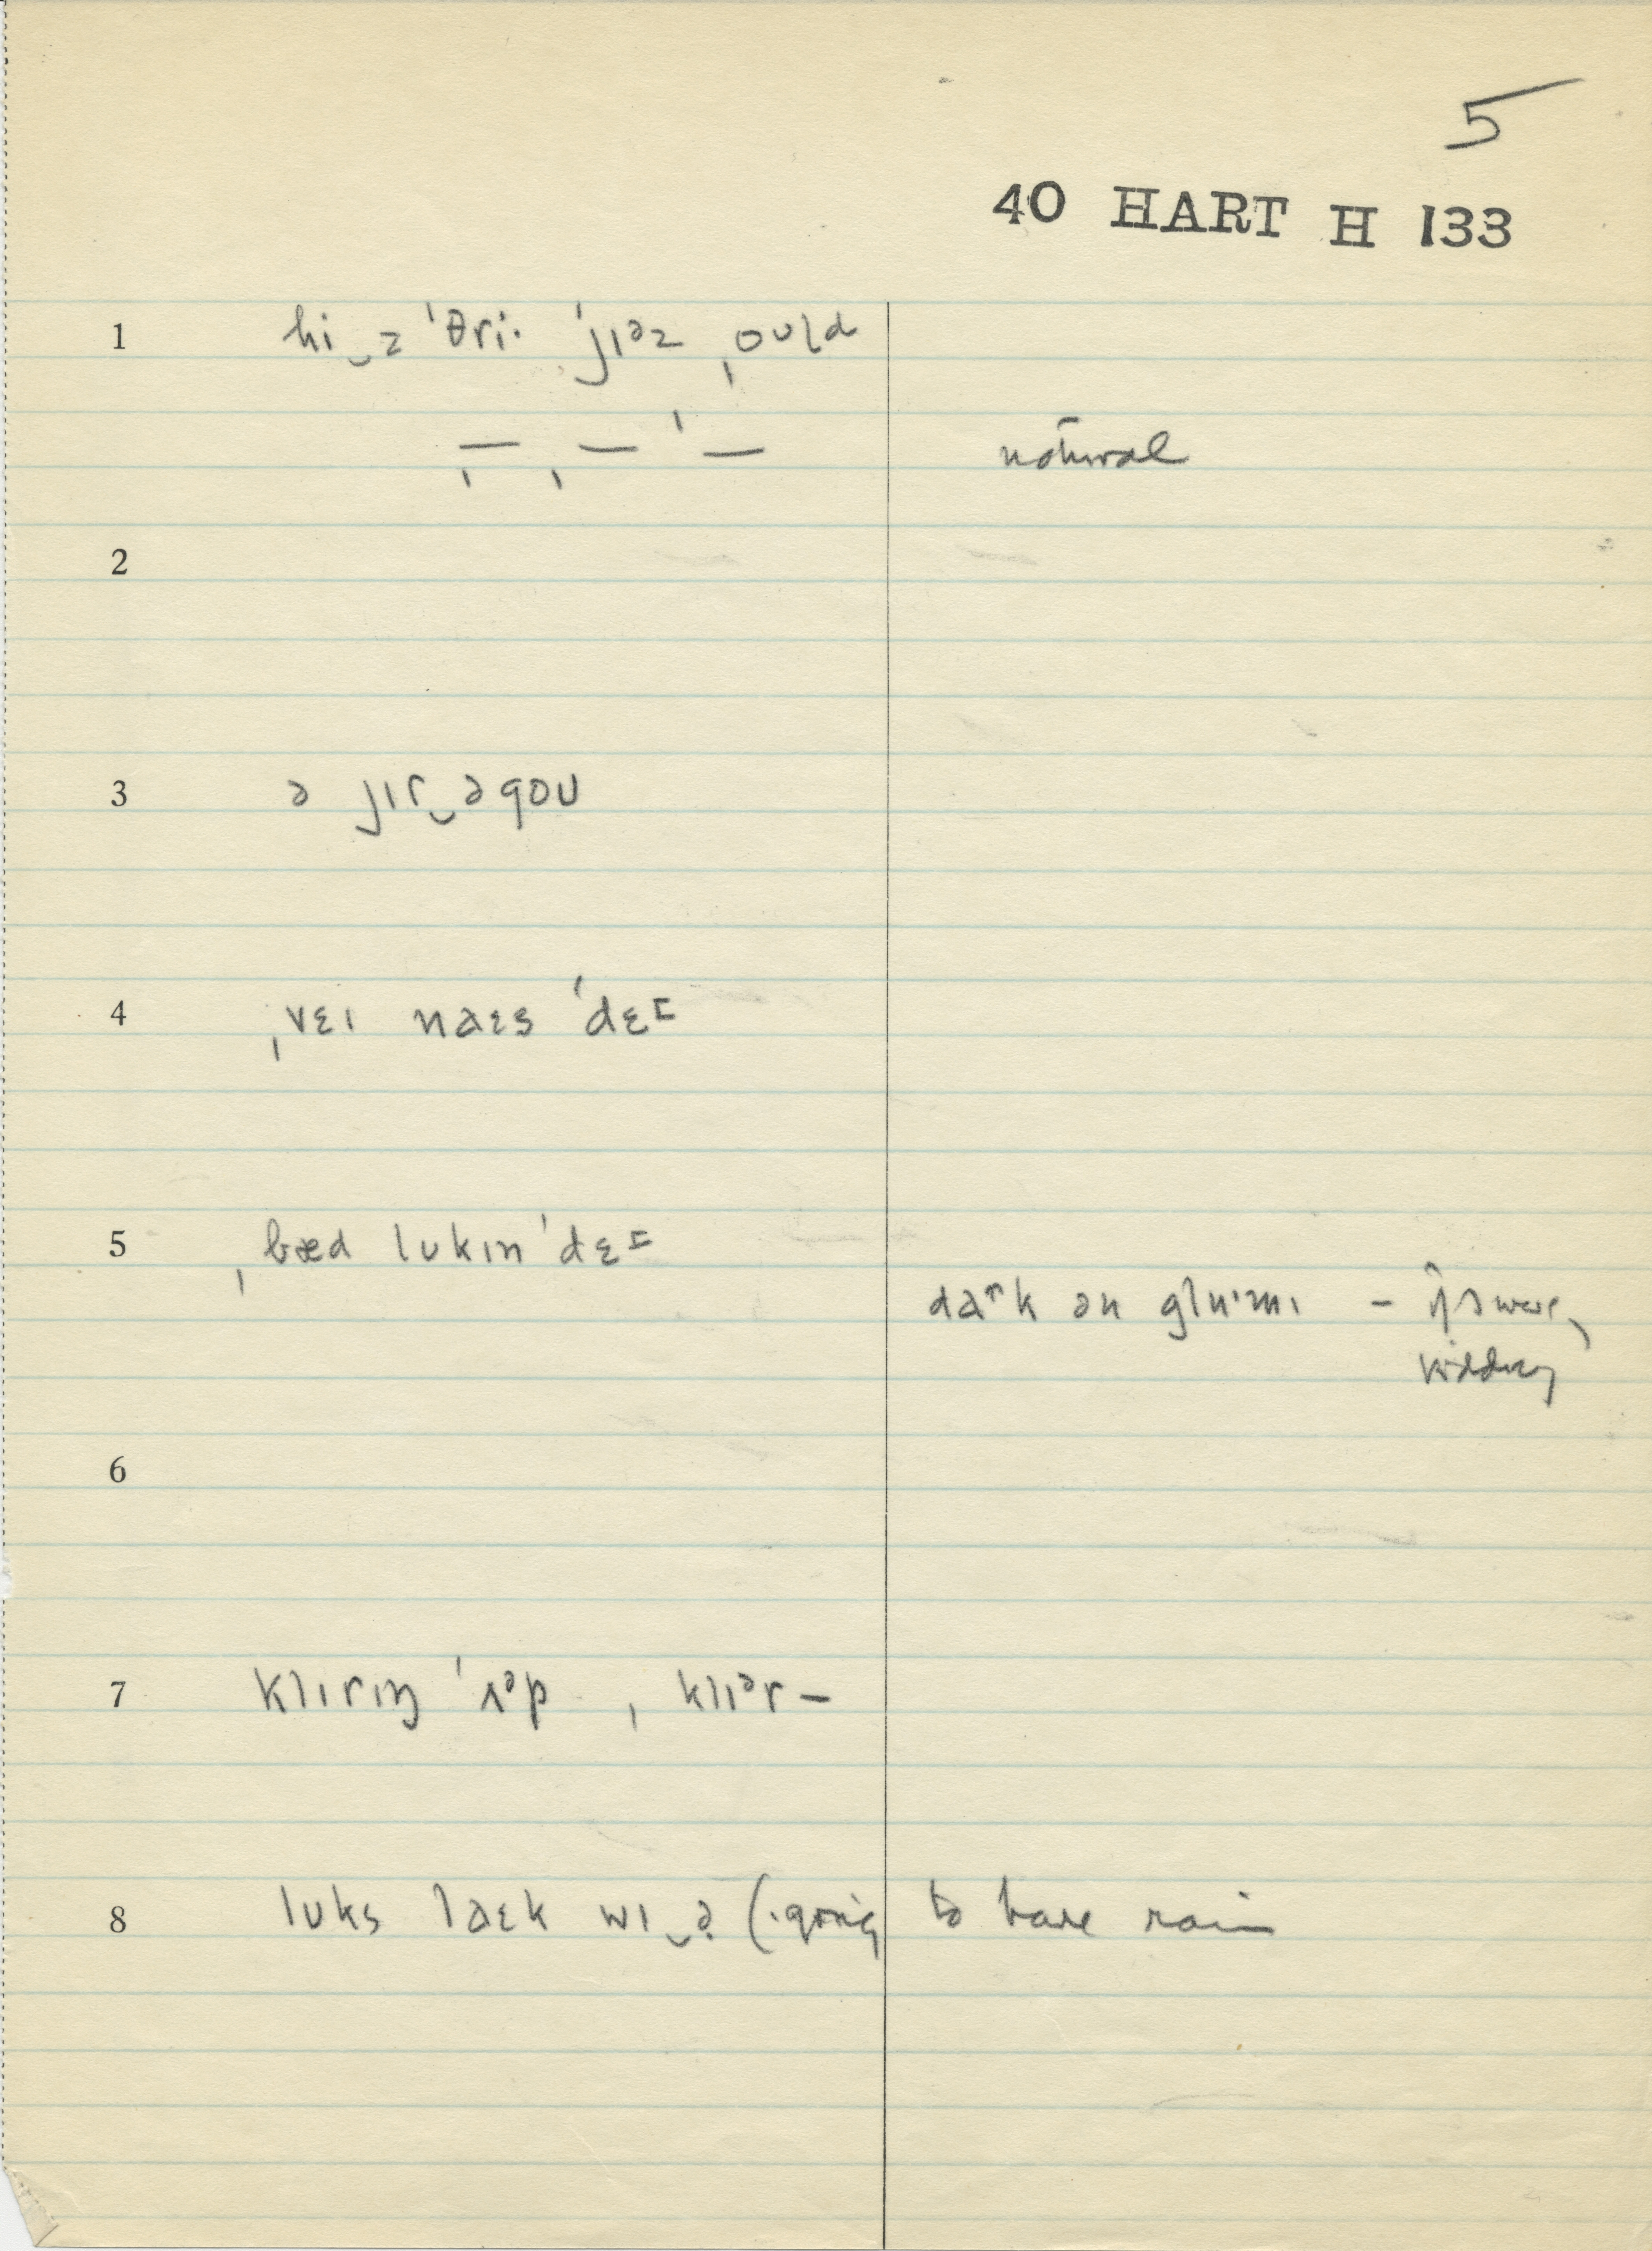 5
40 HART H 133
1 hi‿z ˈθriˑ ˈjɪᵊz ˌoʊld
ˌ— ˌ— ˈ— natural
2
3 ə jɪr‿əgoʊ
4 ˌvɛɪ naɛs ˈdɛɪ
5 ˌbæd lʊkɪn ˈdɛɪ
daʳk ən gluˑmɪ –
6
7 klɪrɪŋ ˈʌᵊp , klɪᵊr –
8 lʊks laɛk wɪ‿ə (going to have rain